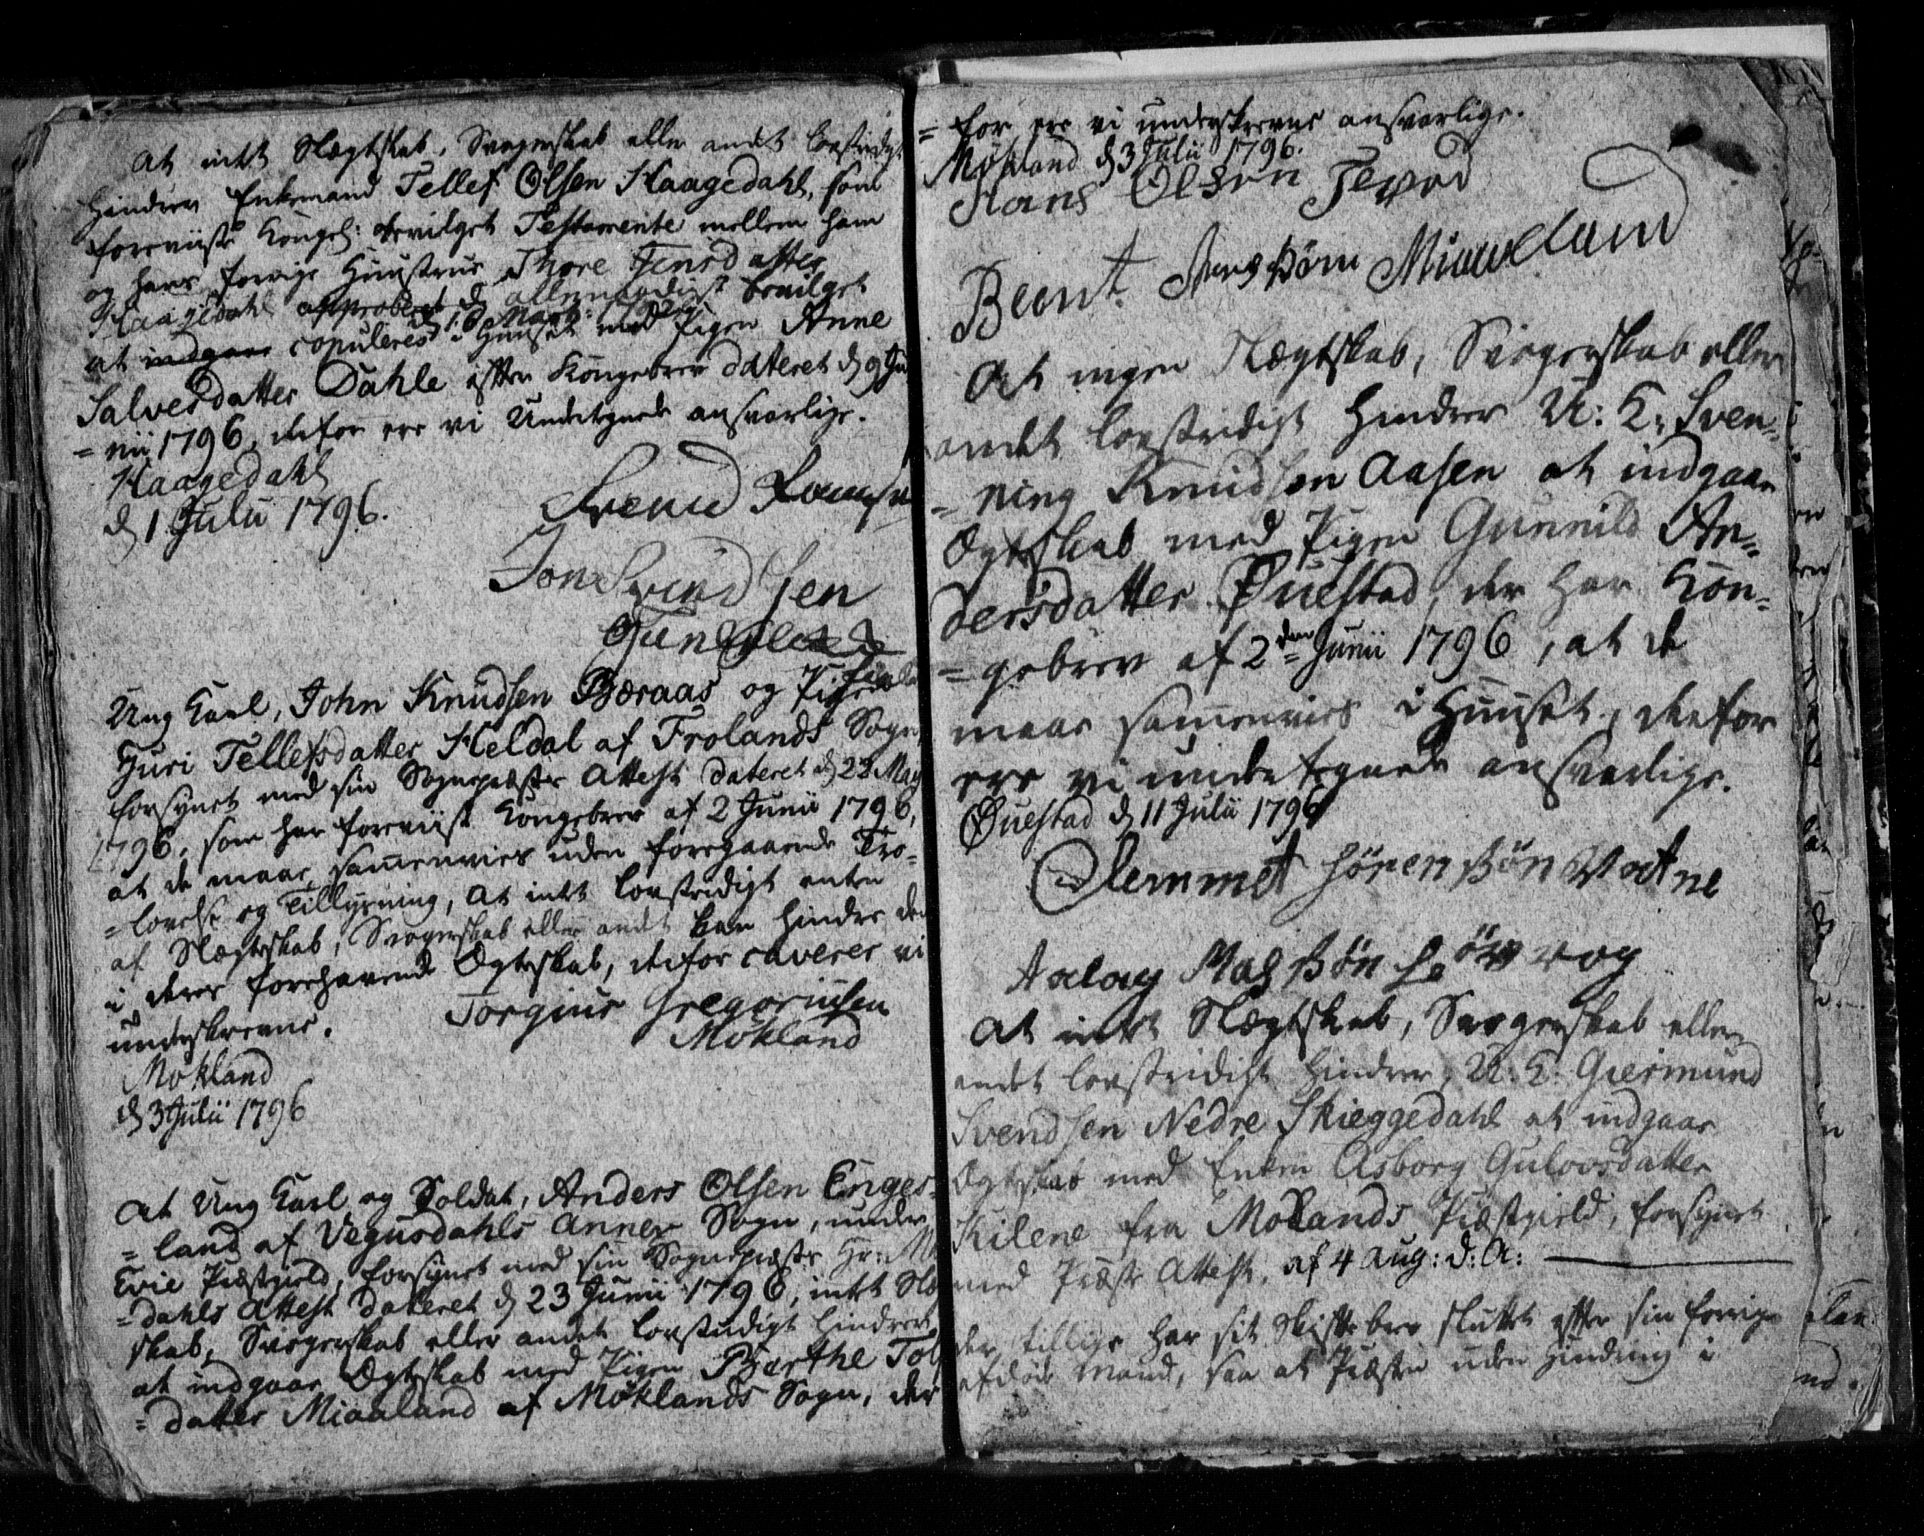 At intet Slægtskab, Svogerskab eller andet lovstridigt
Hindrer Enkemand Tellef Olsen Haagedahl, som
foreviiste Kongel: bevilget Testamente mellem ham
og hans forrige Huustrue Thore Jensdatter
Haagedahl approberet allernaadigst bevilget
at indgaae copuleres i Huuset med Pigen Anne
Salvesdatter Dahle efter Kongebrev dateret d 9 Ju
= nii 1796, derfor ere vi Undertegnede ansvarlige.
Haagedahl
d 1 Julii 1796.
Svend
Jon Svendsen
Ung Karl, John Knudsen Bæraas og Pigen
Guri Tellefsdatter Heldal af Frolands Sogn
forsynet med sin Sognepræstes Attest dateret d 22 May
1796, som har foreviist Kongebrev af 2 Junii 1796,
at de maae sammenvies uden foregaaende Tro-
= lovelse og Tillysning, At intet lovstridigt enten
af Slægtskab, Svogerskab eller andet kan hindre dem
i deres forehavende Ægteskab, derfor caverer vi
underskrevne.
Torgius Gregoriusen
Mokland
Mokland
d 3 Julii 1796
At Ung Karl og Soldat, Anders Olsen Enges-
= land af Vegusdahls Annex Sogn, under
Evie Præstgield, forsynet med sin Sognepræstes Hr:
= dahls Attest dateret d 23 Junii 1796, intet Slæ
skab, Svogerskab eller andet lovstridigt hindrer
at indgaae Ægteskab med Pigen Barthe
= datter Miaaland af Moklands Sogn, der
= for ere vi underskrevne ansvarlige.
Mokland d 3 Julii 1796.
Hans Olsen
Beent
At ingen Slægtskab, Svogerskab eller
andet lovstridigt Hindrer U: K: Sven-
= ning Knudsen Aasen at indgaae
Ægteskab med Pigen Gunnild An-
dersdatter Øuestad, der har Kon-
= gebrev af 2den Junii 1796, at de
maae sammenvies i Huuset, derfor
ere vi undertegnede ansvarlige.
Øuestad d 11 Julii 1796
Clemmet Sörensön Vatne
Aslag
At intet Slægtskab, Svogerskab eller
andet lovstridigt Hindrer, U. K. Giermund
Svendsen Nedre Skieggedahl at indgaae
Ægteskab med Enken Asborg Gulovsdatter
Kilene fra Molands Præstgield, forsynet
med Præste Attest, af 4 Aug: d: A:
der tillige har sit Skiftebrev sluttet efter sin forrige
afdøde Mand, saa at Præsten uden Hindring i